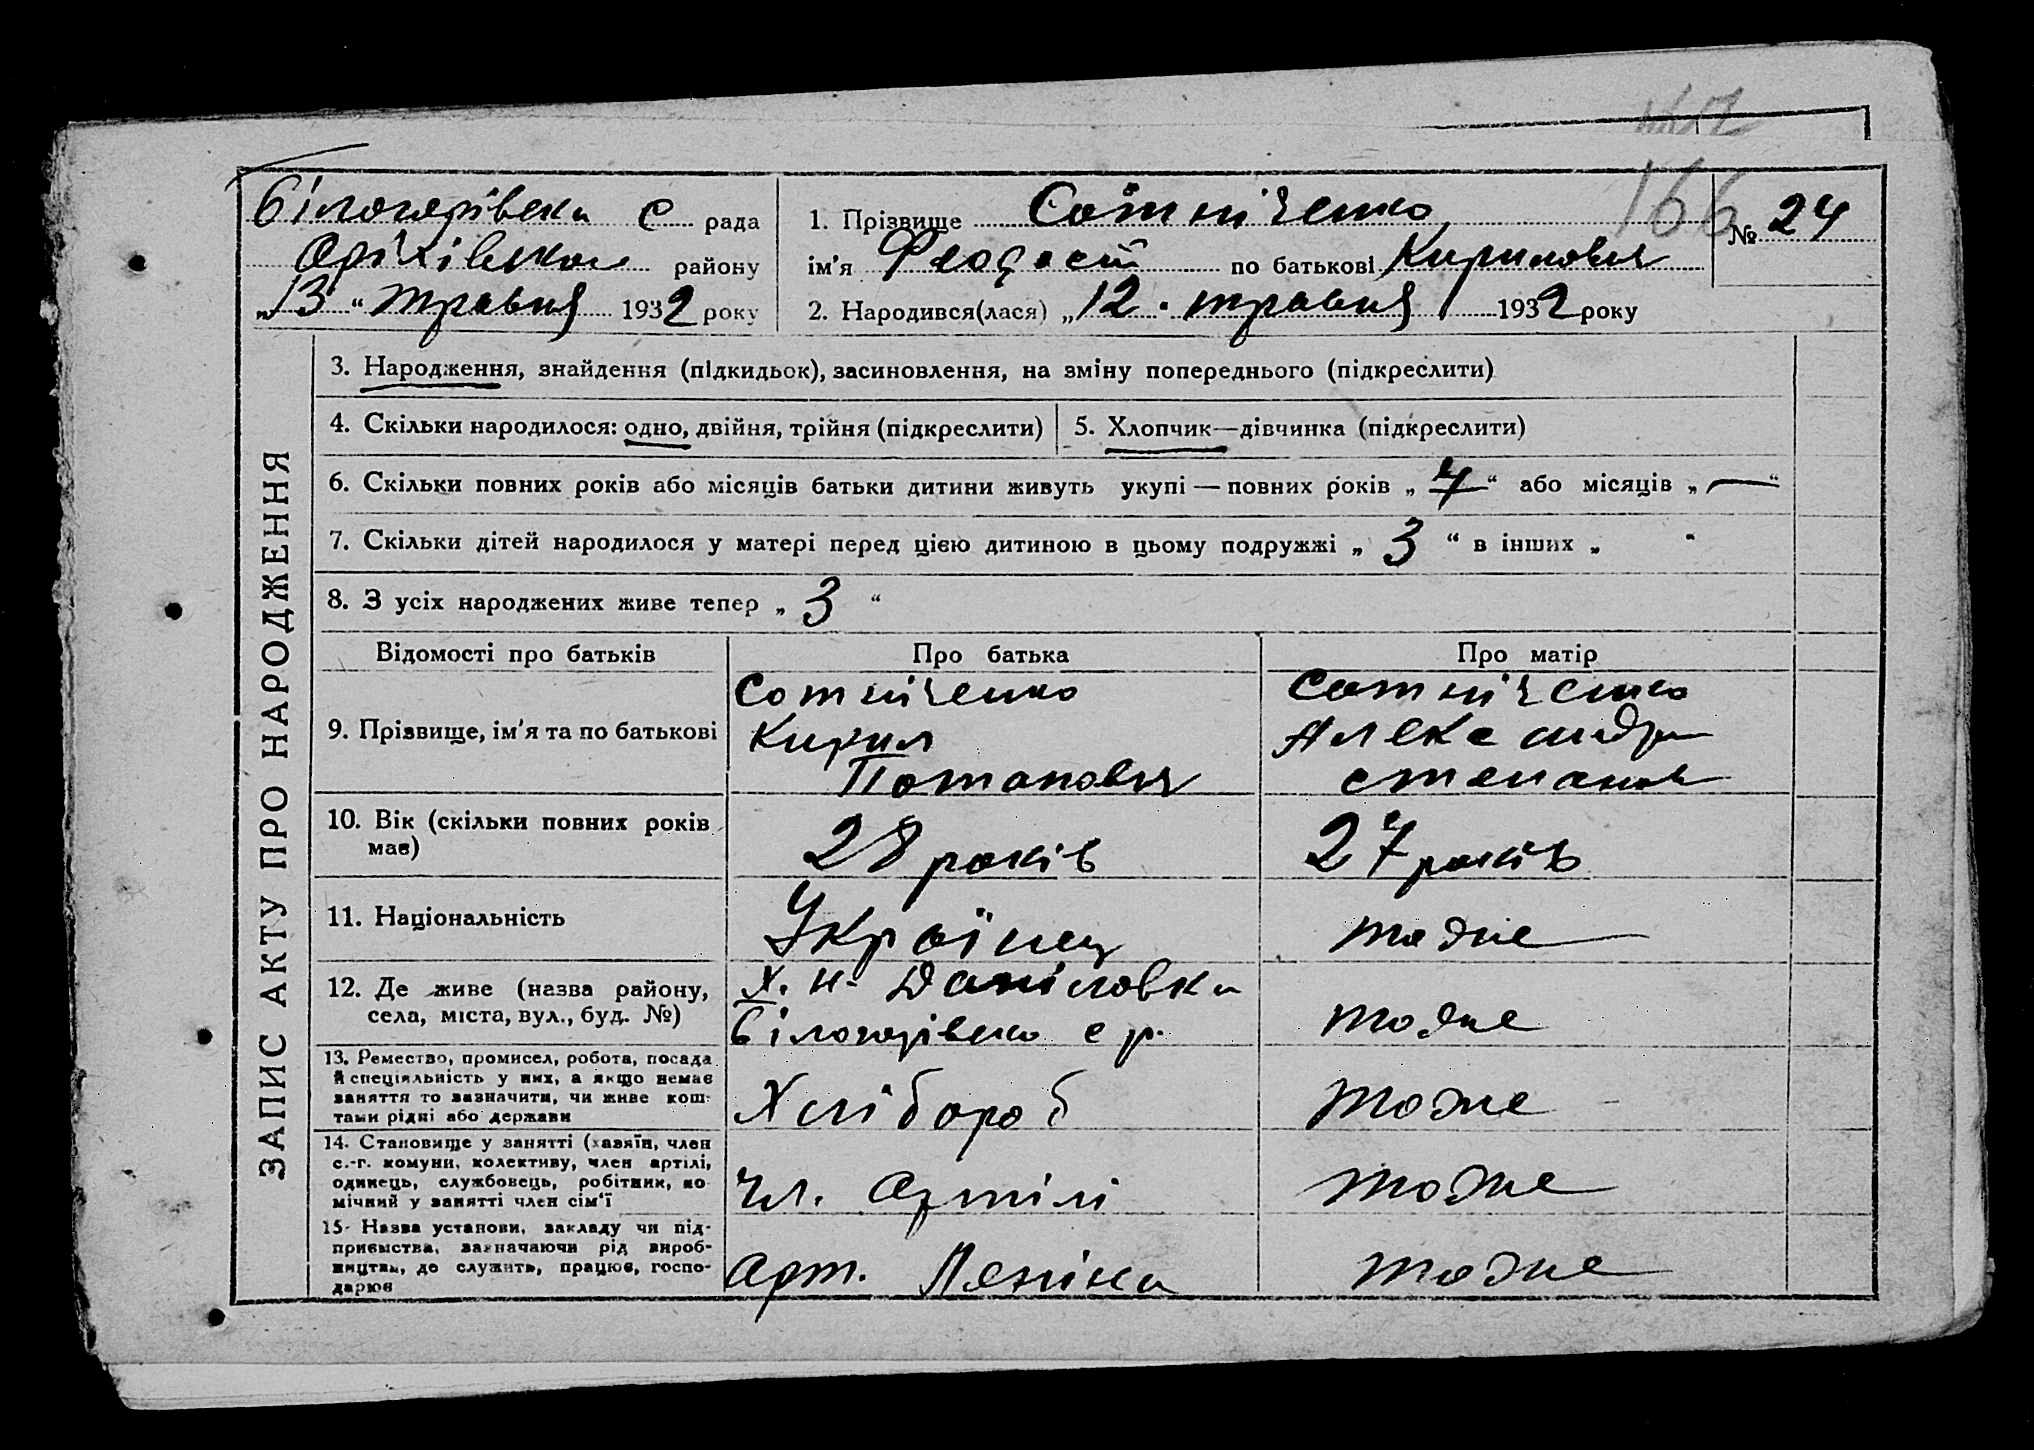 166
Білогорівска с рада
Оріхівском району
„13“ травня 1932 року
1. Прізвище Сотніченко
№ 24
ім'я Феодост по батькові Кирилович
2. Народився(лася) „12. травня 1932 року
ЗАПИС АКТУ ПРО НАРОДЖЕННЯ
3. Народження, знайдення (підкидьок), засиновлення, на зміну попереднього (підкреслити)
4. Скільки народилося: одно, двійня, трійня (підкреслити)
5. Хлопчик—дівчинка (підкреслити)
6. Скільки повних років або місяців батьки дитини живуть укупі — повних років „ 7 “ або місяців „ — “
7. Скільки дітей народилося у матері перед цією дитиною в цьому подружжі „ 3 “ в інших „ “
8. З усіх народжених живе тепер „ 3 “
Відомості про батьків
Про батька
Про матір
9. Прізвище, ім'я та по батькові
Сотніченко
Кирил
Потапович
Сотніченко
Александра
Степанов
10. Вік (скільки повних років
має)
28 років
27 років
11. Національність
Українец
тоже
12. Де живе (назва району,
села, міста, вул., буд. №)
Х. Н- Даніловка
Білогорівско с р.
тоже
13. Ремество, промисел, робота, посада
й спеціяльність у них, а якщо немає
заняття то зазначити, чи живе кош-
тами рідні або держави
Хлібороб
тоже
14. Становище у занятті (хазяїн, член
с.-г. комуни, колективу, член артілі,
одинець, службовець, робітник, по
мічний у занятті член сім'ї
Чл. Артілі
тоже
15- Назва установи, закладу чи під-
приємства, зазначаючи рід вироб-
ництва, де служить, працює, госпо-
дарює
Арт. Леніна
тоже